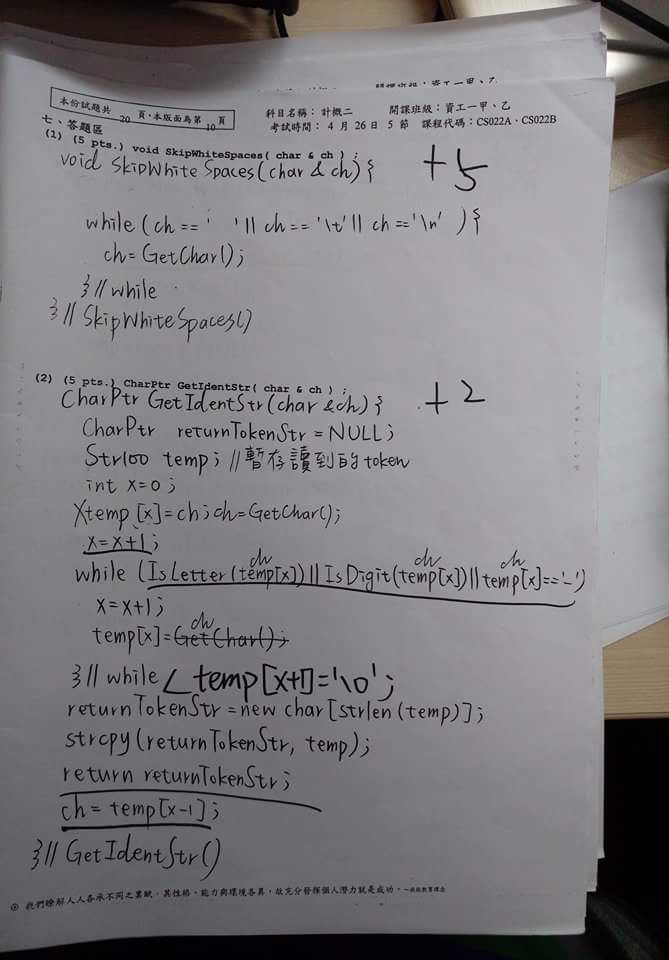 本份試題共 20 頁,本版面為第 10 頁
科目名稱: 計概二 開課班級:資工一甲、乙
考試時間: 4 月 26日 5 節 課程代碼:CS022A、CS022B
七、答題區
(1) (5 pts.) void SkipWhiteSpaces( char & ch ) ;
void SkipWhiteSpaces(char & ch){ +5
while(ch==' ' || ch=='\t' || ch=='\n' ){
ch=GetChar();
}//while
}//SkipWhiteSpaces()
(2) (5 pts.) CharPtr GetIdentStr( char & ch ) ;
CharPtr GetIdentStr(char &ch){ +2
CharPtr returnTokenStr=NULL;
Str100 temp; //暫存讀到的token
int x=0;
temp[x]=ch;ch=GetChar();
x=x+1;
ch ch ch
while (IsLetter(temp[x])||IsDigit(temp[x])||temp[x]=='_')
x=x+1;
ch
temp[x]=GetChar();
}//while temp[x+1]='\0';
returnTokenStr=new char[strlen(temp)];
strcpy(returnTokenStr, temp);
return returnTokenStr;
ch=temp[x-1];
}//GetIdentStr()
我們瞭解人人各承不同之稟賦,其性格、能力與環境各異,故充分發揮個人潛力就是成功。